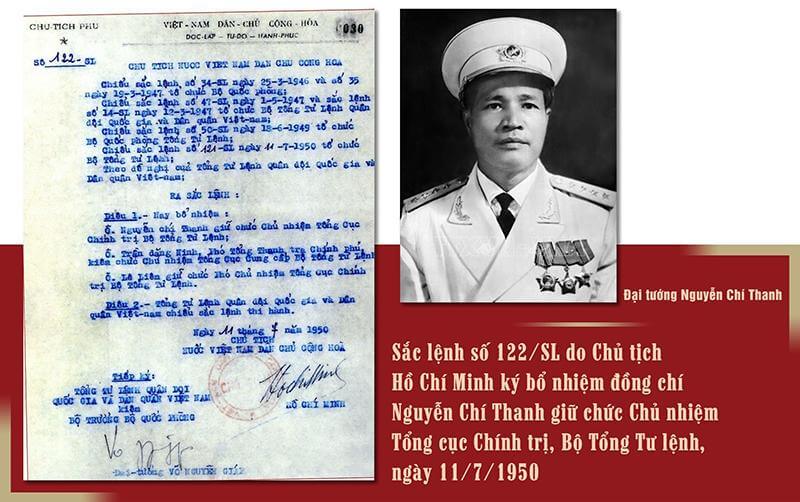 CHỦ-TỊCH PHỦ
VIỆT-NAM DÂN-CHỦ CỘNG-HÒA
ĐỘC-LẬP — TỰ-DO — HẠNH-PHÚC
SỐ 122-SL
CHỦ TỊCH NƯỚC VIỆT NAM DÂN CHỦ CỘNG HOÀ
Chiếu sắc lệnh số 34-SL ngày 25-3-1946 và số 35
ngày 19-3-1947 tổ chức Bộ Quốc phòng;
Chiếu sắc lệnh số 47-SL ngày 1-5-1947 và sắc lệnh
số 14-SL ngày 12-3-1947 tổ chức Bộ Tổng Tư Lệnh Quân
đội Quốc gia và Dân quân Việt-nam;
Chiếu sắc lệnh số 50-SL ngày 18-6-1949 tổ chức
Bộ Quốc phòng Tổng Tư Lệnh;
Chiếu sắc lệnh số 121-SL ngày 11-7-1950 tổ chức
Bộ Tổng Tư Lệnh;
Theo đề nghị của Tổng Tư Lệnh Quân đội Quốc gia và
Dân quân Việt-nam;
RA SẮC LỆNH :
Điều 1.- Nay bổ nhiệm :
Ô. Nguyễn chí Thanh giữ chức Chủ nhiệm Tổng Cục
Chính trị Bộ Tổng Tư Lệnh;
Ô. Trần đăng Ninh, Phó Tổng Thanh tra Chính phủ,
kiêm chức Chủ nhiệm Tổng Cục Cung cấp Bộ Tổng Tư Lệnh;
Ô. Lê Liêm giữ chức Phó Chủ nhiệm Tổng Cục Chính
trị Bộ Tổng Tư Lệnh.
Điều 2.- Tổng Tư Lệnh Quân đội Quốc gia và Dân
quân Việt-nam chiếu sắc lệnh thi hành.
Ngày 11 tháng 7 năm 1950
CHỦ TỊCH
NƯỚC VIỆT NAM DÂN CHỦ CỘNG HOÀ
HỒ CHÍ MINH
Tiếp ký:
TỔNG TƯ LỆNH QUÂN ĐỘI
QUỐC GIA VÀ DÂN QUÂN VIỆT NAM
kiêm
BỘ TRƯỞNG BỘ QUỐC PHÒNG
Đại-tướng VÕ NGUYÊN GIÁP
Đại tướng Nguyễn Chí Thanh
Sắc lệnh số 122/SL do Chủ tịch
Hồ Chí Minh ký bổ nhiệm đồng chí
Nguyễn Chí Thanh giữ chức Chủ nhiệm
Tổng cục Chính trị, Bộ Tổng Tư lệnh,
ngày 11/7/1950